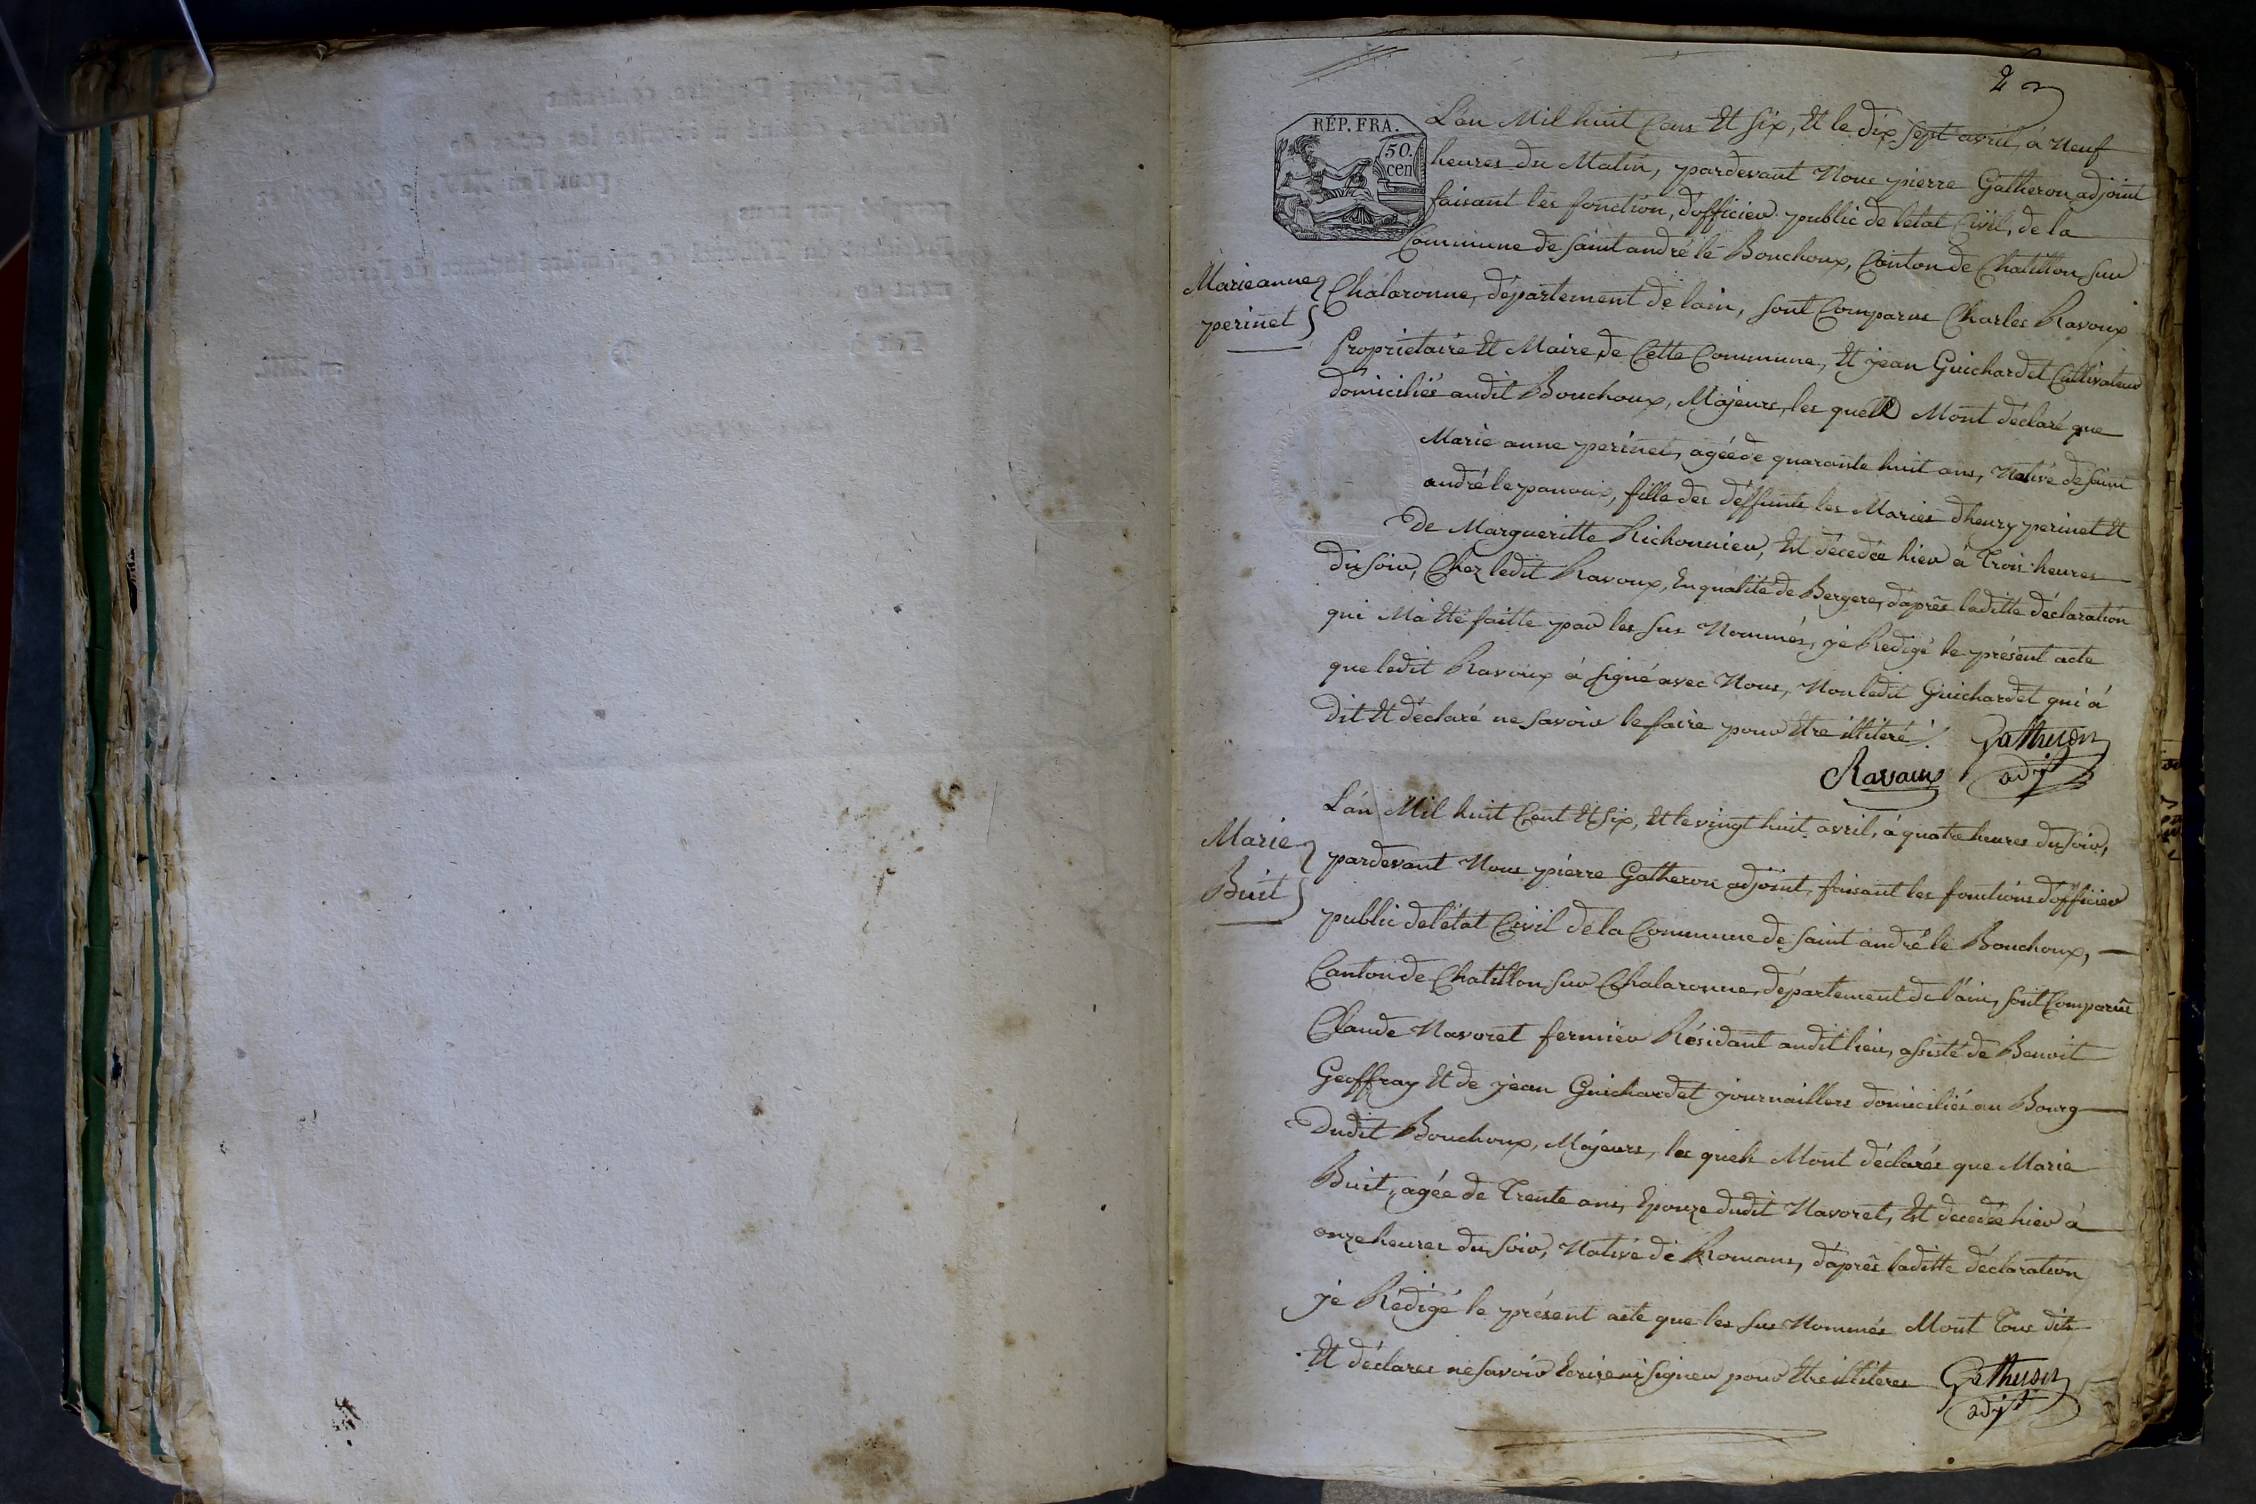 2
RÉP. FRA.
50.
cen
L'an Mil huit Cens Et Six, Et le dix Sept avril, à Neuf
heures du Matin, pardevant Nous pierre Gatheron adjoint
faisant les fonction, d'officier public de l'état Civil, de la
Commune de Saint andré le Bouchoux, Canton de Chatillon sur
Chalaronne, département de lain, sont Comparus Charles Ravoux
Proprietaire Et Maire de Cette Commune, Et jean Guichardet Cultivateur
domiciliés audit Bouchoux, Majeurs, les quels Mont déclaré que
Marie anne perinet, agée de quarante huit ans, Native de Saint
andré le panoux, fille des deffunts les Maries dhenry perinet Et
de Margueritte Richonnier, Est décedée hier à Trois heures
du soir, Chez ledit Ravoux, En qualité de Bergere, d'après laditte déclaration
qui Ma Eté faitte par les sus Nommés, jé Redigé le présent acte
que ledit Ravoux à signé avec Nous, Non ledit Guichardet qui à
dit Et déclaré ne savoir le faire pour Etre illitéré.
Gatheron
Ravoux adjt
Marie anne
perinet
L'an Mil huit Cent Et Six, Et le vingt huit avril, à quatre heures du soir,
pardevant Nous pierre Gatheron adjoint, faisant les fonctions d'officier
public de l'état Civil de la Commune de Saint andré le Bouchoux,
Canton de Chatillon sur Chalaronne, département de l'ain, sont Comparus
Claude Navoret fermier Résidant audit lieu, assisté de Benoit
Geoffray Et de jean Guichardet journaillers domiciliés au Bourg
dudit Bouchoux, Majeurs, les quels Mont déclarés que Marie
Buit, agée de Trente ans, Epouze dudit Navoret, Est decedée hier à
onze heures du soir, Native de Romans, d'après laditte déclaration
jé Rédigé le présent acte que les sus Nommés Mont Tous dits
Et déclares ne savoir Ecrire ni signer pour Etre illiteres
Gatheron
adjt
Marie
Buit